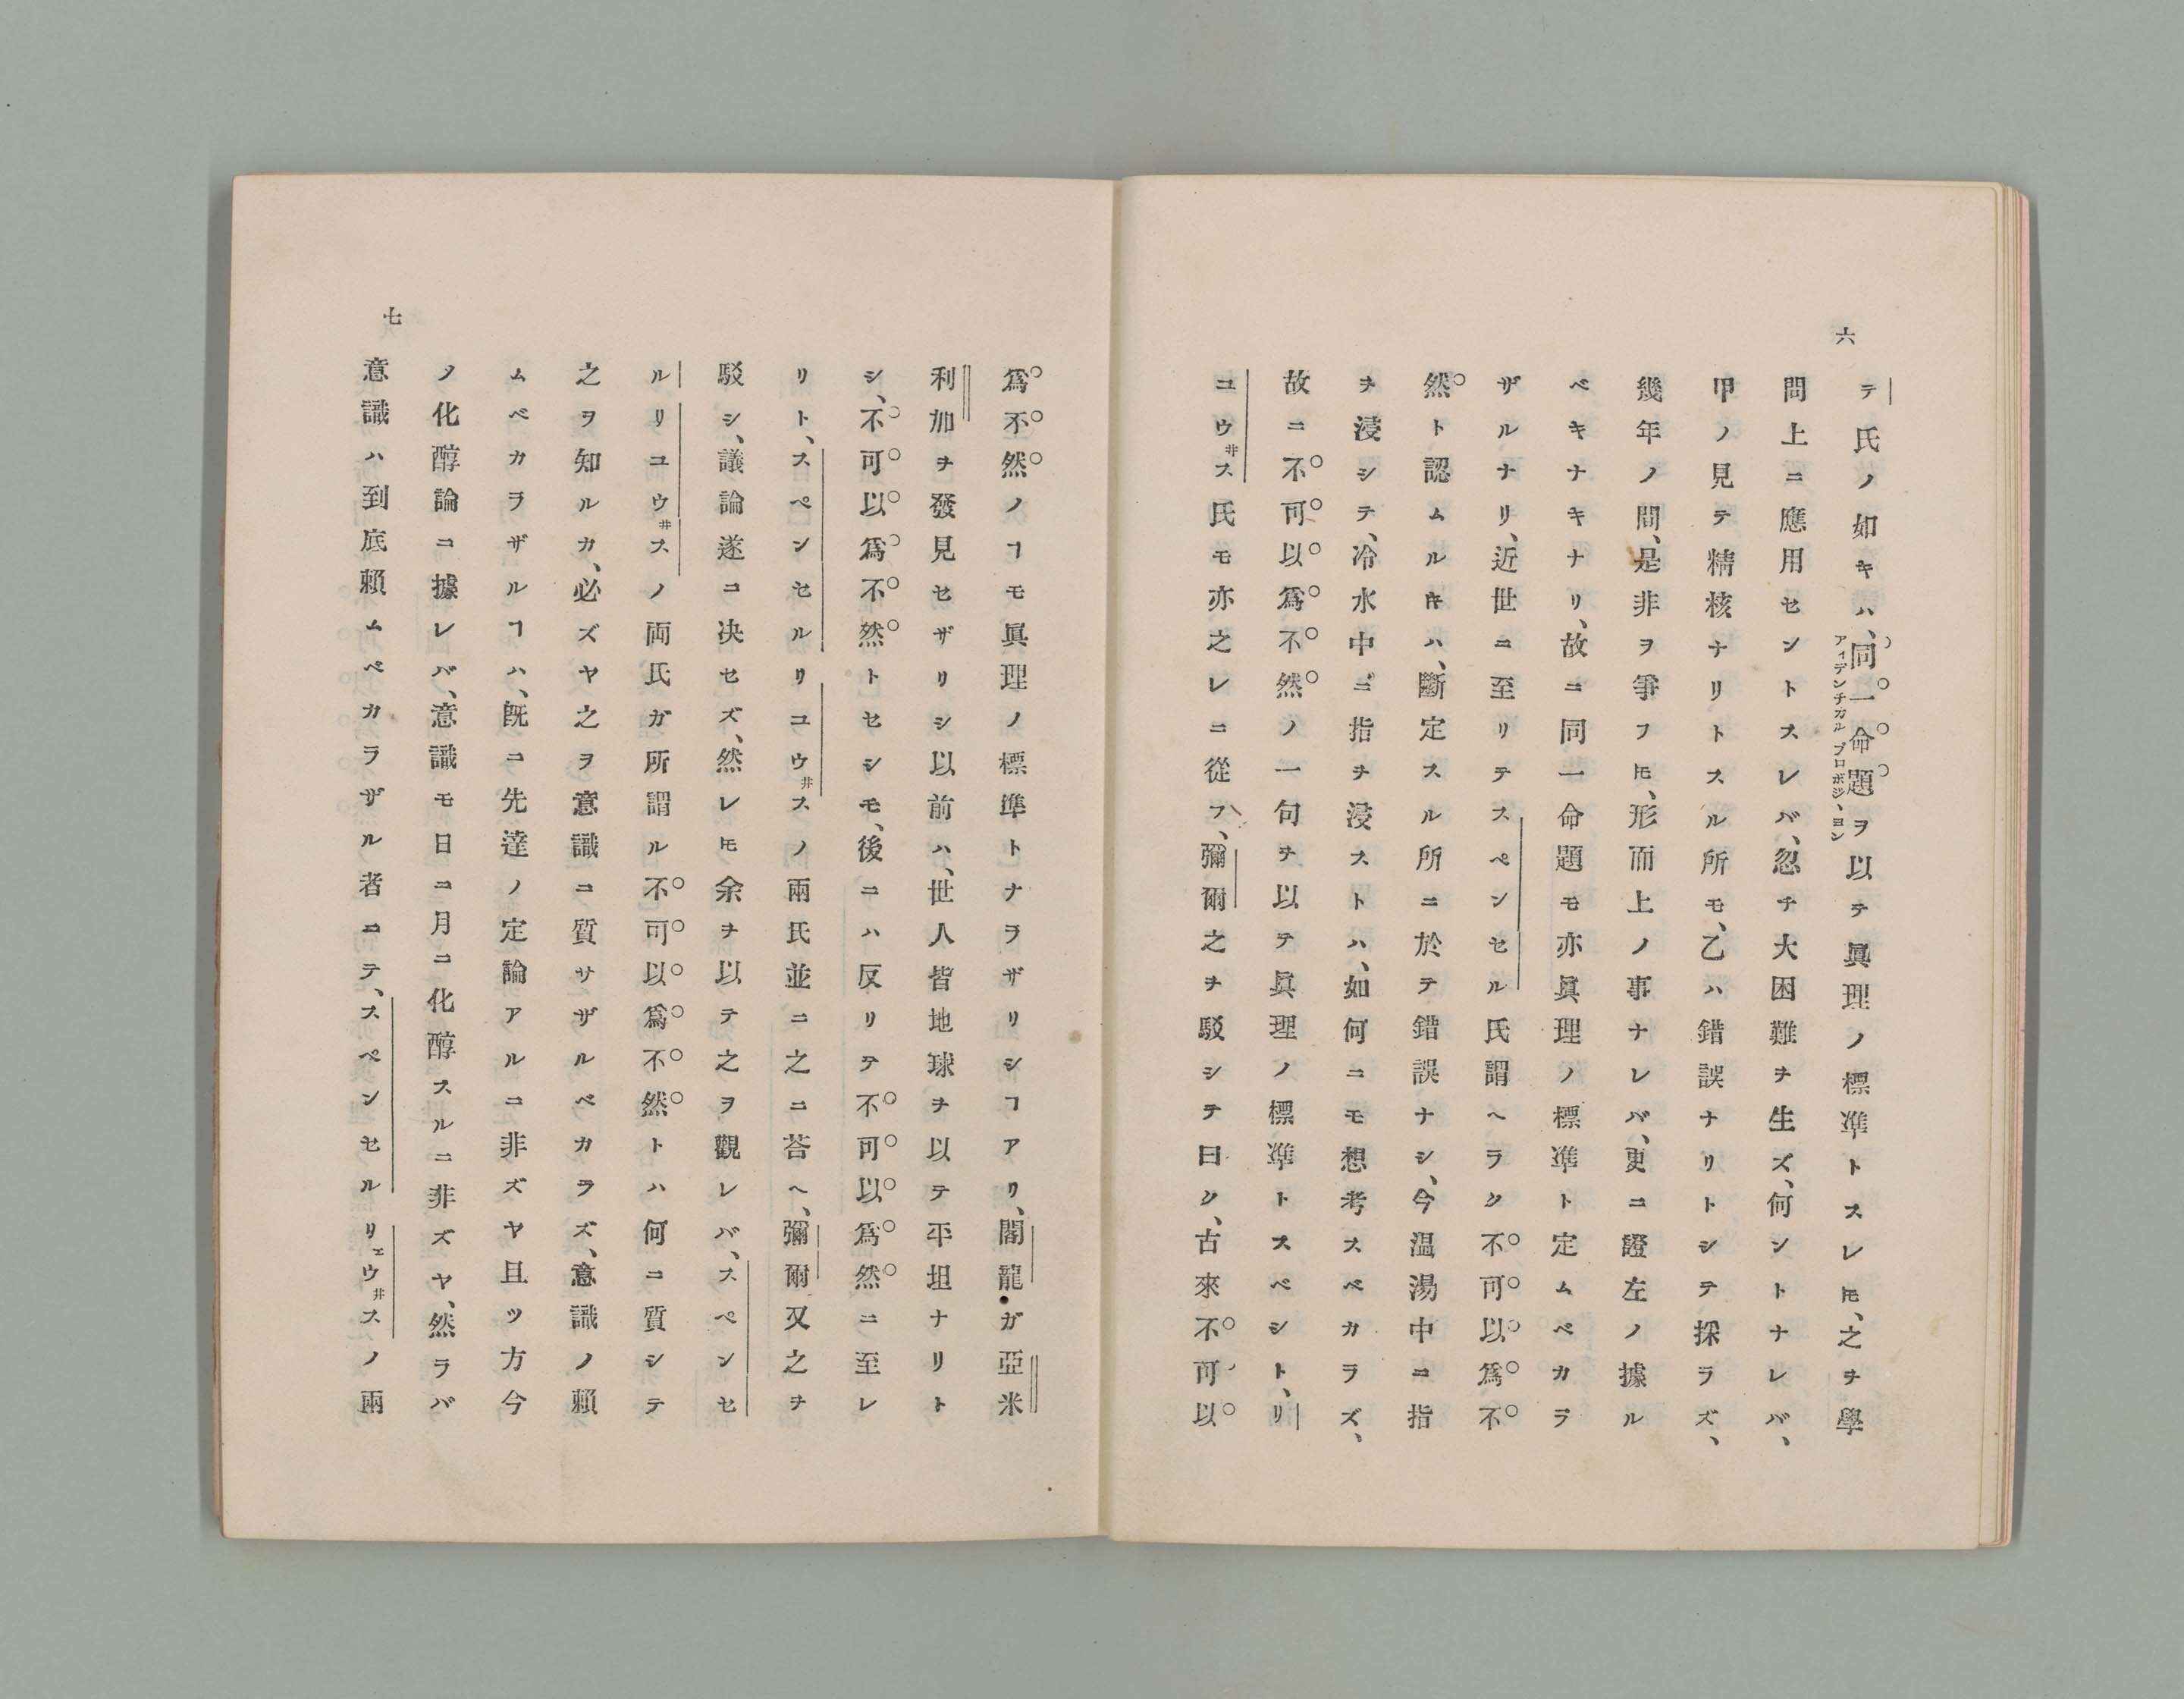 六
テ氏ノ如キハ、同一命題ヲ以テ眞理ノ標準トスレ𪜈、之ヲ學
アイデンチカルプロポジ、ヨン
問上ニ應用セントスレバ、忽チ大困難ヲ生ズ、何ントナレバ、
甲ノ見テ精核ナリトスル所モ、乙ハ錯誤ナリトシテ採ラズ、
幾年ノ間、是非ヲ爭フ𪜈、形而上ノ事ナレバ、更ニ證左ノ據ル
ベキナキナリ、故ニ同一命題モ亦眞理ノ標準ト定ムベカラ
ザルナリ、近世ニ至リテスペンセル氏謂ヘラク不可以爲不
然ト認ムルキハ、斷定スル所ニ於テ錯誤ナシ、今温湯中ニ指
ヲ浸シテ、冷水中ニ指ヲ浸ストハ、如何ニモ想考スベカラズ、
故ニ不可以爲不然ノ一句ヲ以テ眞理ノ標準トスベシト、リ
ユウ井ス氏モ亦之レニ從フ、彌爾之ヲ駁シテ曰ク、古來不可以
七
爲不然ノヿモ眞理ノ標準トナラザリシヿアリ、閣龍ガ亞米
利加ヲ發見セザリシ以前ハ、世人皆地球ヲ以テ平坦ナリト
シ、不可以爲不然トセシモ、後ニハ反リテ不可以爲然ニ至レ
リト、スペンセルリユウ井スノ兩氏並ニ之ニ荅ヘ、彌爾又之ヲ
駁シ、議論遂ニ决セズ、然レ𪜈余ヲ以テ之ヲ觀レバ、スペンセ
ルリユウ井スノ両氏ガ所謂ル不可以爲不然トハ何ニ質シテ
之ヲ知ルカ、必ズヤ之ヲ意識ニ質サザルベカラズ、意識ノ賴
ムベカラザルヿハ、既ニ先達ノ定論アルニ非ズヤ且ツ方今
ノ化醇論ニ據レバ、意識モ日ニ月ニ化醇スルニ非ズヤ、然ラバ
意識ハ到底賴ムベカラザル者ニテ、スペンセルリェウ井スノ兩